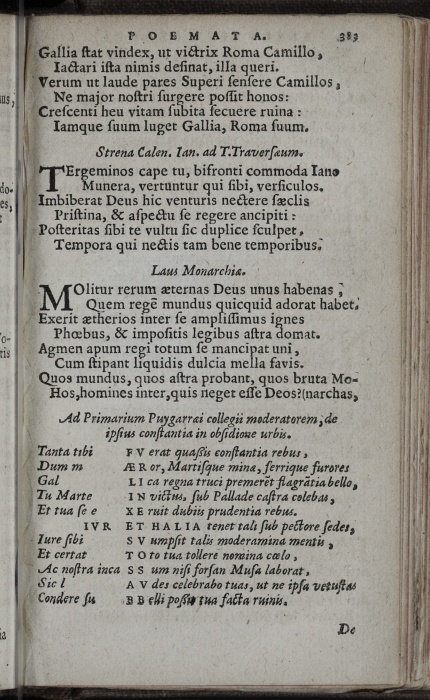 POEMATA. 383
Gallia ſtat vindex, ut victrix Roma Camillo,
Iactari iſta nimis deſinat, illa queri.
Verum ut laude pares Superi ſenſere Camillos,
Ne major noſtri ſurgere poſſit honos:
Creſcenti heu vitam ſubita ſecuere ruina:
Iamque ſuum luget Gallia, Roma ſuum.
Strena Calen. Ian. ad T.Traverſaum.
TErgeminos cape tu, bifronti commoda Iano
Munera, vertuntur qui ſibi, verſiculos.
Imbiberat Deus hic venturis nectere ſæclis
Priſtina, & aſpectu ſe regere ancipiti:
Poſteritas ſibi te vultu ſic duplice ſculpet,
Tempora qui nectis tam bene temporibus.
Laus Monarchiæ.
MOlitur rerum æternas Deus unus habenas;
Quem regē mundus quicquid adorat habet.
Exerit ætherios inter ſe ampliſſimus ignes
Phœbus, & impoſitis legibus aſtra domat.
Agmen apum regi totum ſe mancipat uni,
Cum ſtipant liquidis dulcia mella favis.
Quos mundus, quos aſtra probant, quos bruta Mo-
Hos, homines inter, quis neget eſſe Deos?(narchas,
Ad Primarium Puygarræi collegii moderatorem, de
ipſius conſtantia in obſidione urbis.
Tanta tibi FV erat quaſſis conſtantia rebus,
Dum m ÆR or, Martiſque minæ, ferrique furores
Gal LI ca regna truci premerēt flagrātia bello,
Tu Marte IN victus, ſub Pallade caſtra colebas,
Et tua ſe e XE ruit dubiis prudentia rebus.
IVR ET HALIA tenet tali ſub pectore ſedes,
Iure ſibi SV umpſit talis moderamina mentis,
Et certat TO to tua tollere nomina cœlo,
Ac noſtra inca SS um niſi forſan Muſa laborat,
Sic l AV des celebrabo tuas, ut ne ipſa vetuſtas
Condere ſu BB elli poſſit tua facta ruinis.
De